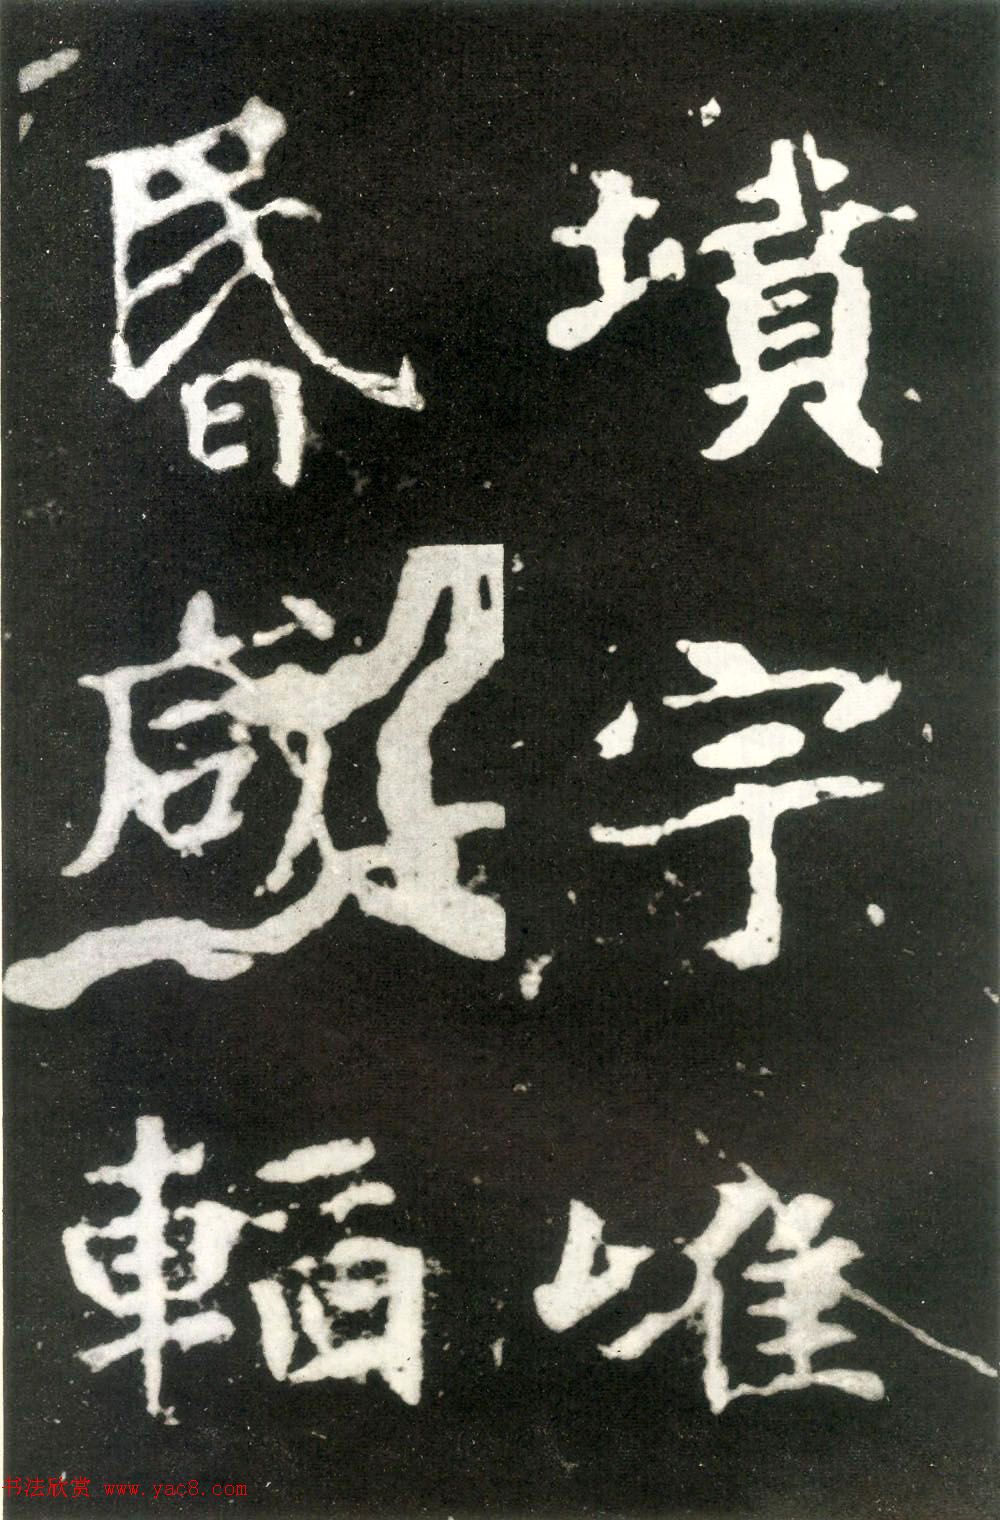 墳宇唯
昬咸輶
书法欣赏 www.yac8.com